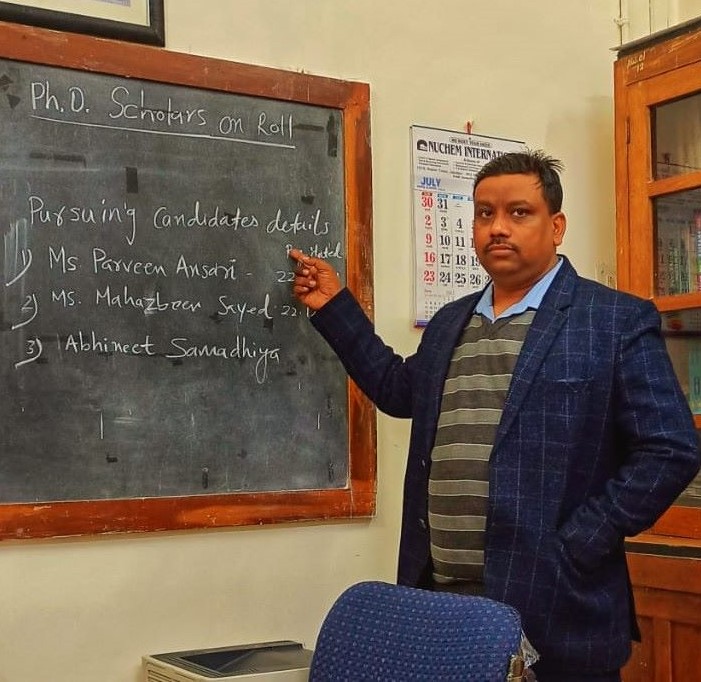 Ph.D. Scholars on Roll
Pursuing Candidates details
1) Ms Parveen Ansari - 22
2) Ms. Mahazbeen Sayed 22.
3) Abhineet Samadhiya
NUCHEM INTERNATI
JULY
30 31
2 3 4
9 10 11
16 17 18
23 24 25 26